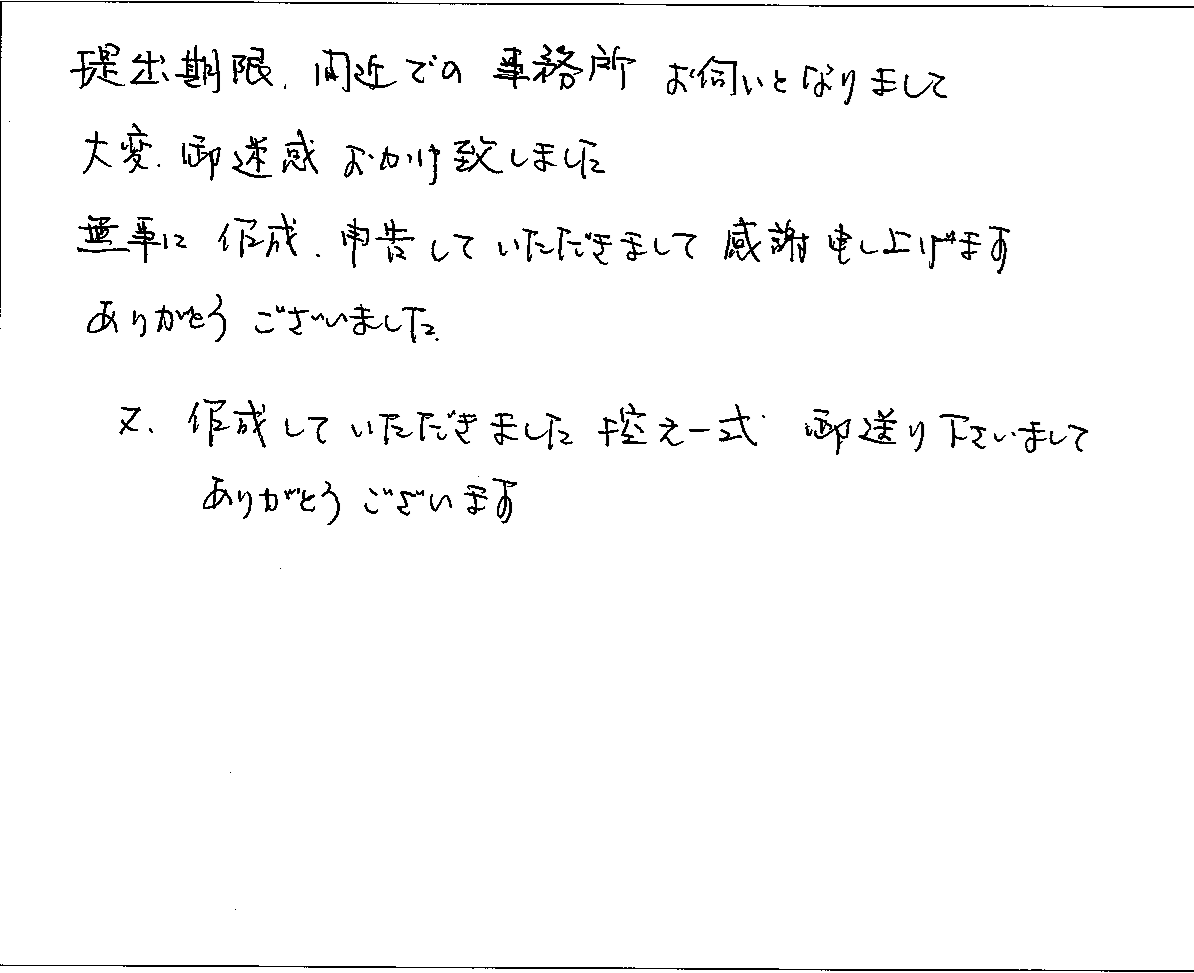 提出期限、間近での 事務所 お伺いとなりまして
大変、御迷惑 おかけ致しました
無事に 作成、申告していただきまして 感謝申し上げます
ありがとう ございました。
又、作成していただきました 控え一式 御送り下さいまして
ありがとう ございます